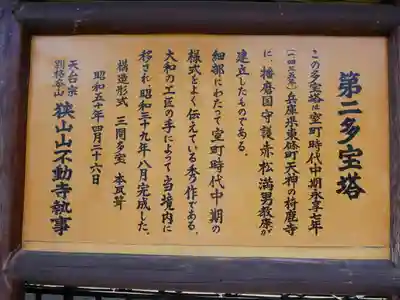 第二多宝塔
この多宝塔は室町時代中期永享七年
(一四三五年)兵庫県東條町天神の椅鹿寺
に、播磨国守護赤松満男教康が
建立したものである。
細部にわたって室町時代中期の
様式をよく伝えている秀作である。
大和の工匠の手によって当境内に
移され昭和三十九年八月完成した。
構造形式 三間多宝 本瓦葺
昭和五十年四月二十六日
天台宗
別格本山 狭山山不動寺執事